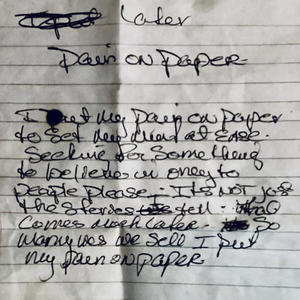 Later
Pain on Paper
I Put my Pain on Paper
to Set my mind at EASE.
Seeking for Something
to believe in only to
people please. It's NOT just
The stories tell.
Comes Much Later. So
Many we sell I put
my pain on paper